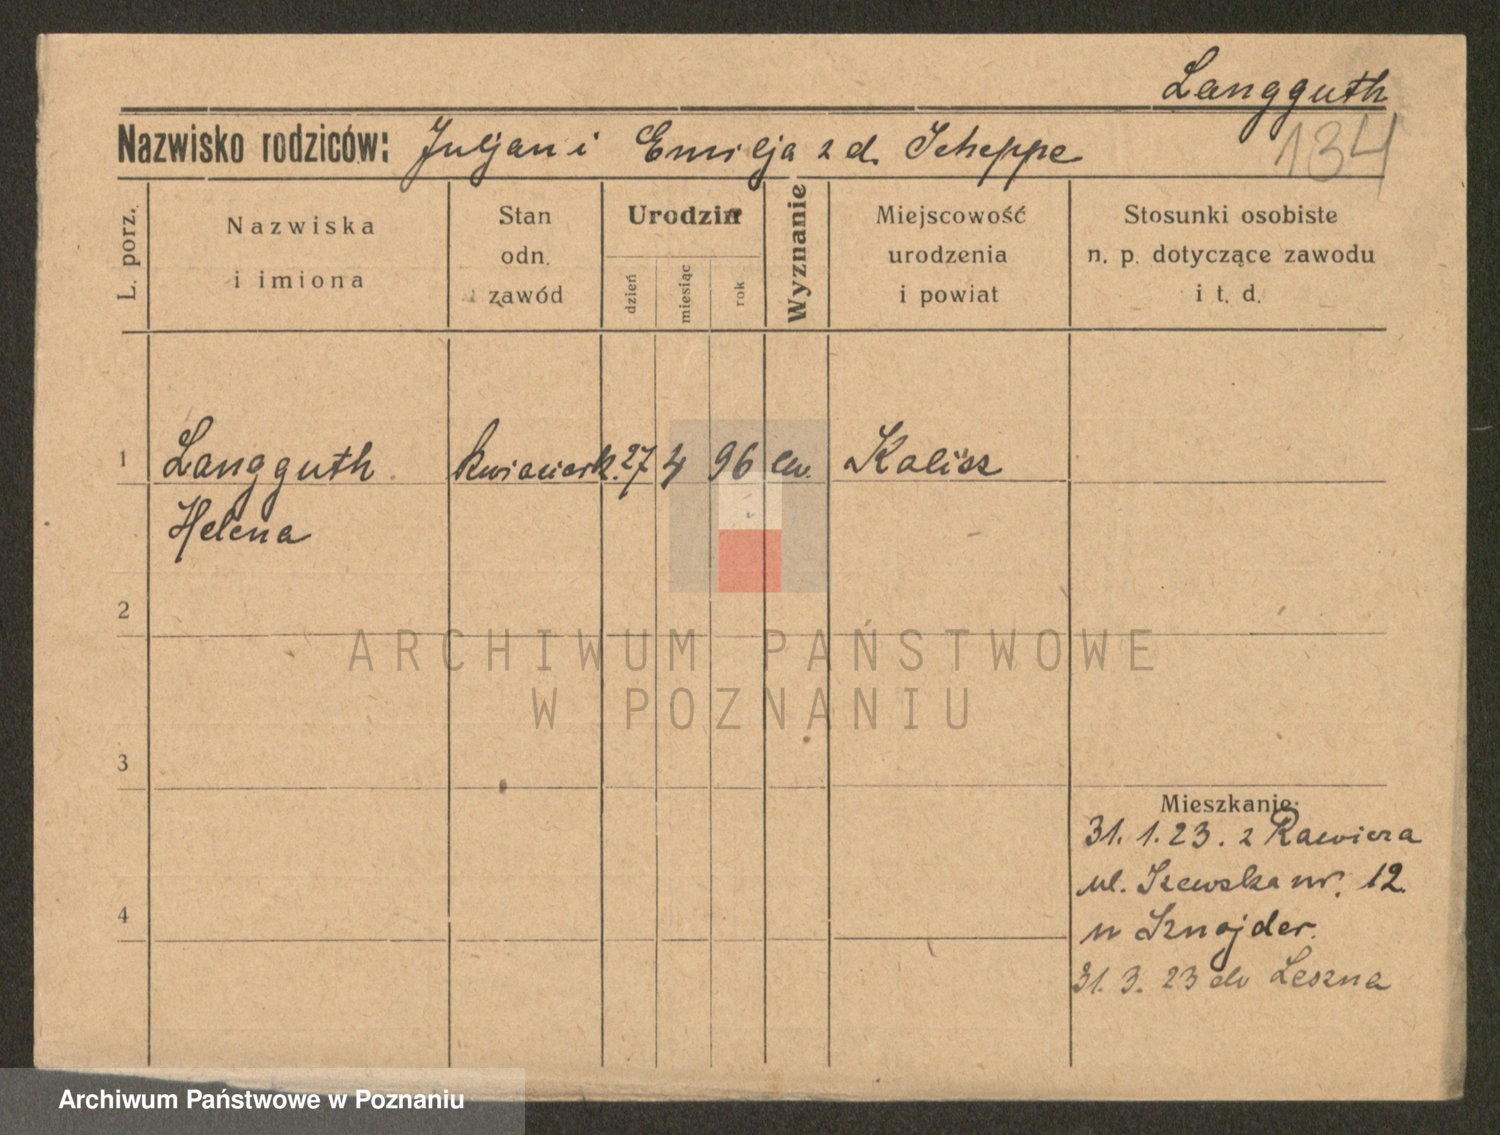 Langguth
134
Nazwisko rodziców: Juljan i Emilja z d. Scheppe
L. porz.
Nazwiska i imiona
Stan odn. zawód
Urodzin
dzień
miesiąc
rok
Wyznanie
Miejscowość urodzenia i powiat
Stosunki osobiste n. p. dotyczące zawodu i t. d.
1 Langguth kwiaciark. 27 4 96 ew. Kalisz
Helena
2
3
Mieszkanie:
31. 1. 23. z Rawicza
ul. Szewska nr. 12.
4
u Sznajder.
31. 3. 23 do Leszna
ARCHIWUM PAŃSTWOWE
W POZNANIU
Archiwum Państwowe w Poznaniu